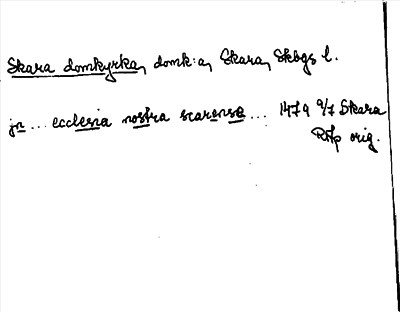 Skara domkyrka, domk:a, Skara, Skbgs l.
jn ... ecclesia nostra scarensa ... 1479 9/7 Skara
RAp orig.